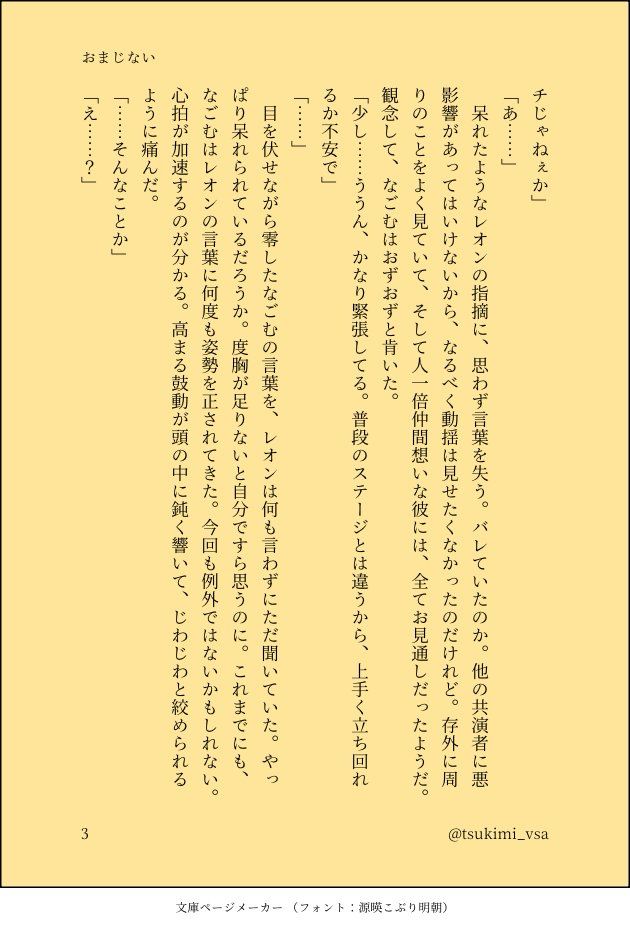 おまじない
チじゃねぇか」
「あ……」
呆れたようなレオンの指摘に、思わず言葉を失う。バレていたのか。他の共演者に悪
影響があってはいけないから、なるべく動揺は見せたくなかったのだけれど。存外に周
りのことをよく見ていて、そして人一倍仲間想いな彼には、全てお見通しだったようだ。
観念して、なごむはおずおずと肯いた。
「少し……ううん、かなり緊張してる。普段のステージとは違うから、上手く立ち回れ
るか不安で」
「……」
目を伏せながら零したなごむの言葉を、レオンは何も言わずにただ聞いていた。やっ
ぱり呆れられているだろうか。度胸が足りないと自分ですら思うのに。これまでにも、
なごむはレオンの言葉に何度も姿勢を正されてきた。今回も例外ではないかもしれない。
心拍が加速するのが分かる。高まる鼓動が頭の中に鈍く響いて、じわじわと絞められる
ように痛んだ。
「……そんなことか」
「え……？」
3
@tsukimi_vsa
文庫ページメーカー（フォント：源暎こぶり明朝）